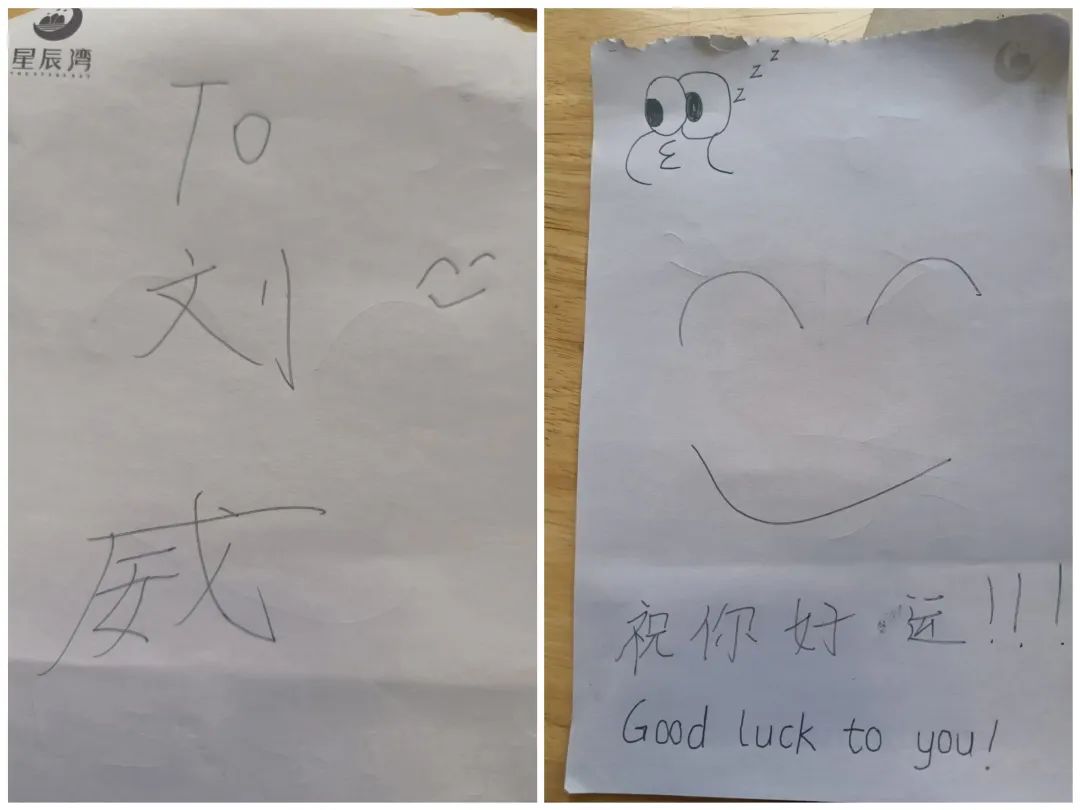 星辰湾
To
刘
威
z z z
祝你好运!!!
Good luck to you!